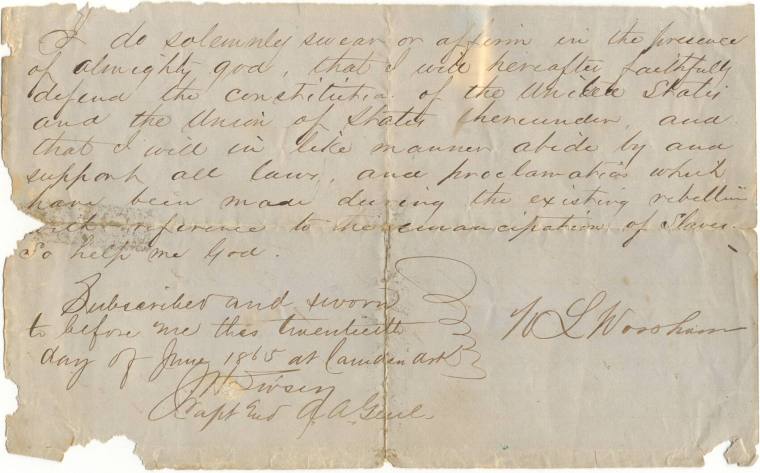 I do solemnly swear or affirm in the presence
of almighty god, that I will hereafter faithfully
defend the constitution of the United States
and the Union of States thereunder, and
that I will in like manner abide by and
support all laws, and proclamations which
have been made during the existing rebellion
with reference to the emancipation of Slaves.
So help me God.
Subscribed and sworn
to before me this twentieth
day of June 1865 at Camden Ark
Capt A. A. Genl.
W L Worsham